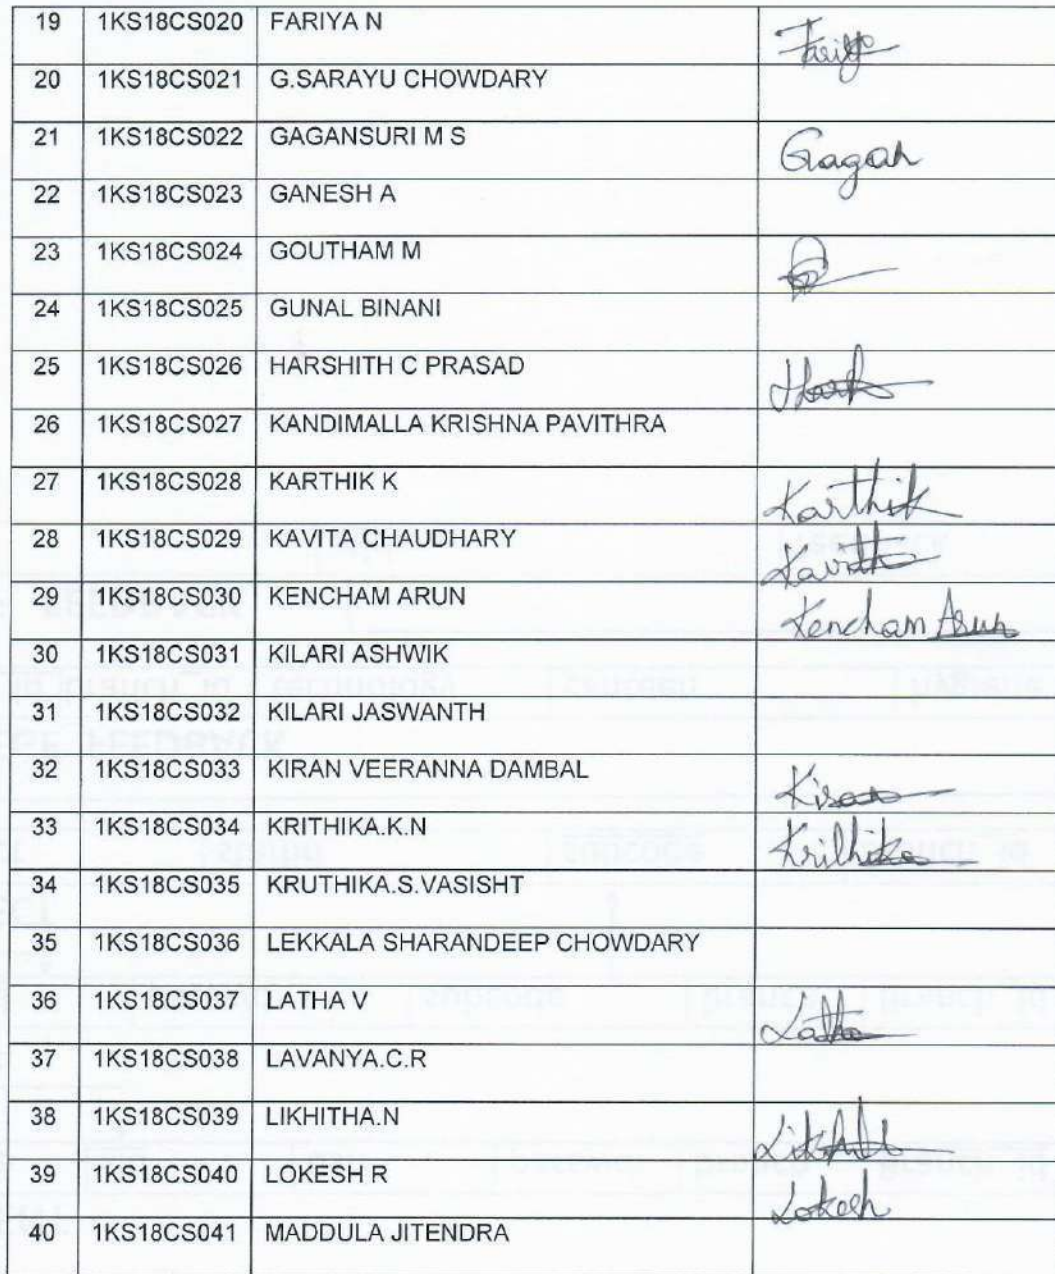 19 1KS18CS020 FARIYA N Fariya
20 1KS18CS021 G.SARAYU CHOWDARY
21 1KS18CS022 GAGANSURI M S Gagan
22 1KS18CS023 GANESH A
23 1KS18CS024 GOUTHAM M
24 1KS18CS025 GUNAL BINANI
25 1KS18CS026 HARSHITH C PRASAD
26 1KS18CS027 KANDIMALLA KRISHNA PAVITHRA
27 1KS18CS028 KARTHIK K Karthik
28 1KS18CS029 KAVITA CHAUDHARY
29 1KS18CS030 KENCHAM ARUN Kencham Arun
30 1KS18CS031 KILARI ASHWIK
31 1KS18CS032 KILARI JASWANTH
32 1KS18CS033 KIRAN VEERANNA DAMBAL Kiran
33 1KS18CS034 KRITHIKA.K.N Krithika
34 1KS18CS035 KRUTHIKA.S.VASISHT
35 1KS18CS036 LEKKALA SHARANDEEP CHOWDARY
36 1KS18CS037 LATHA V Latha
37 1KS18CS038 LAVANYA.C.R
38 1KS18CS039 LIKHITHA.N
39 1KS18CS040 LOKESH R Lokesh
40 1KS18CS041 MADDULA JITENDRA